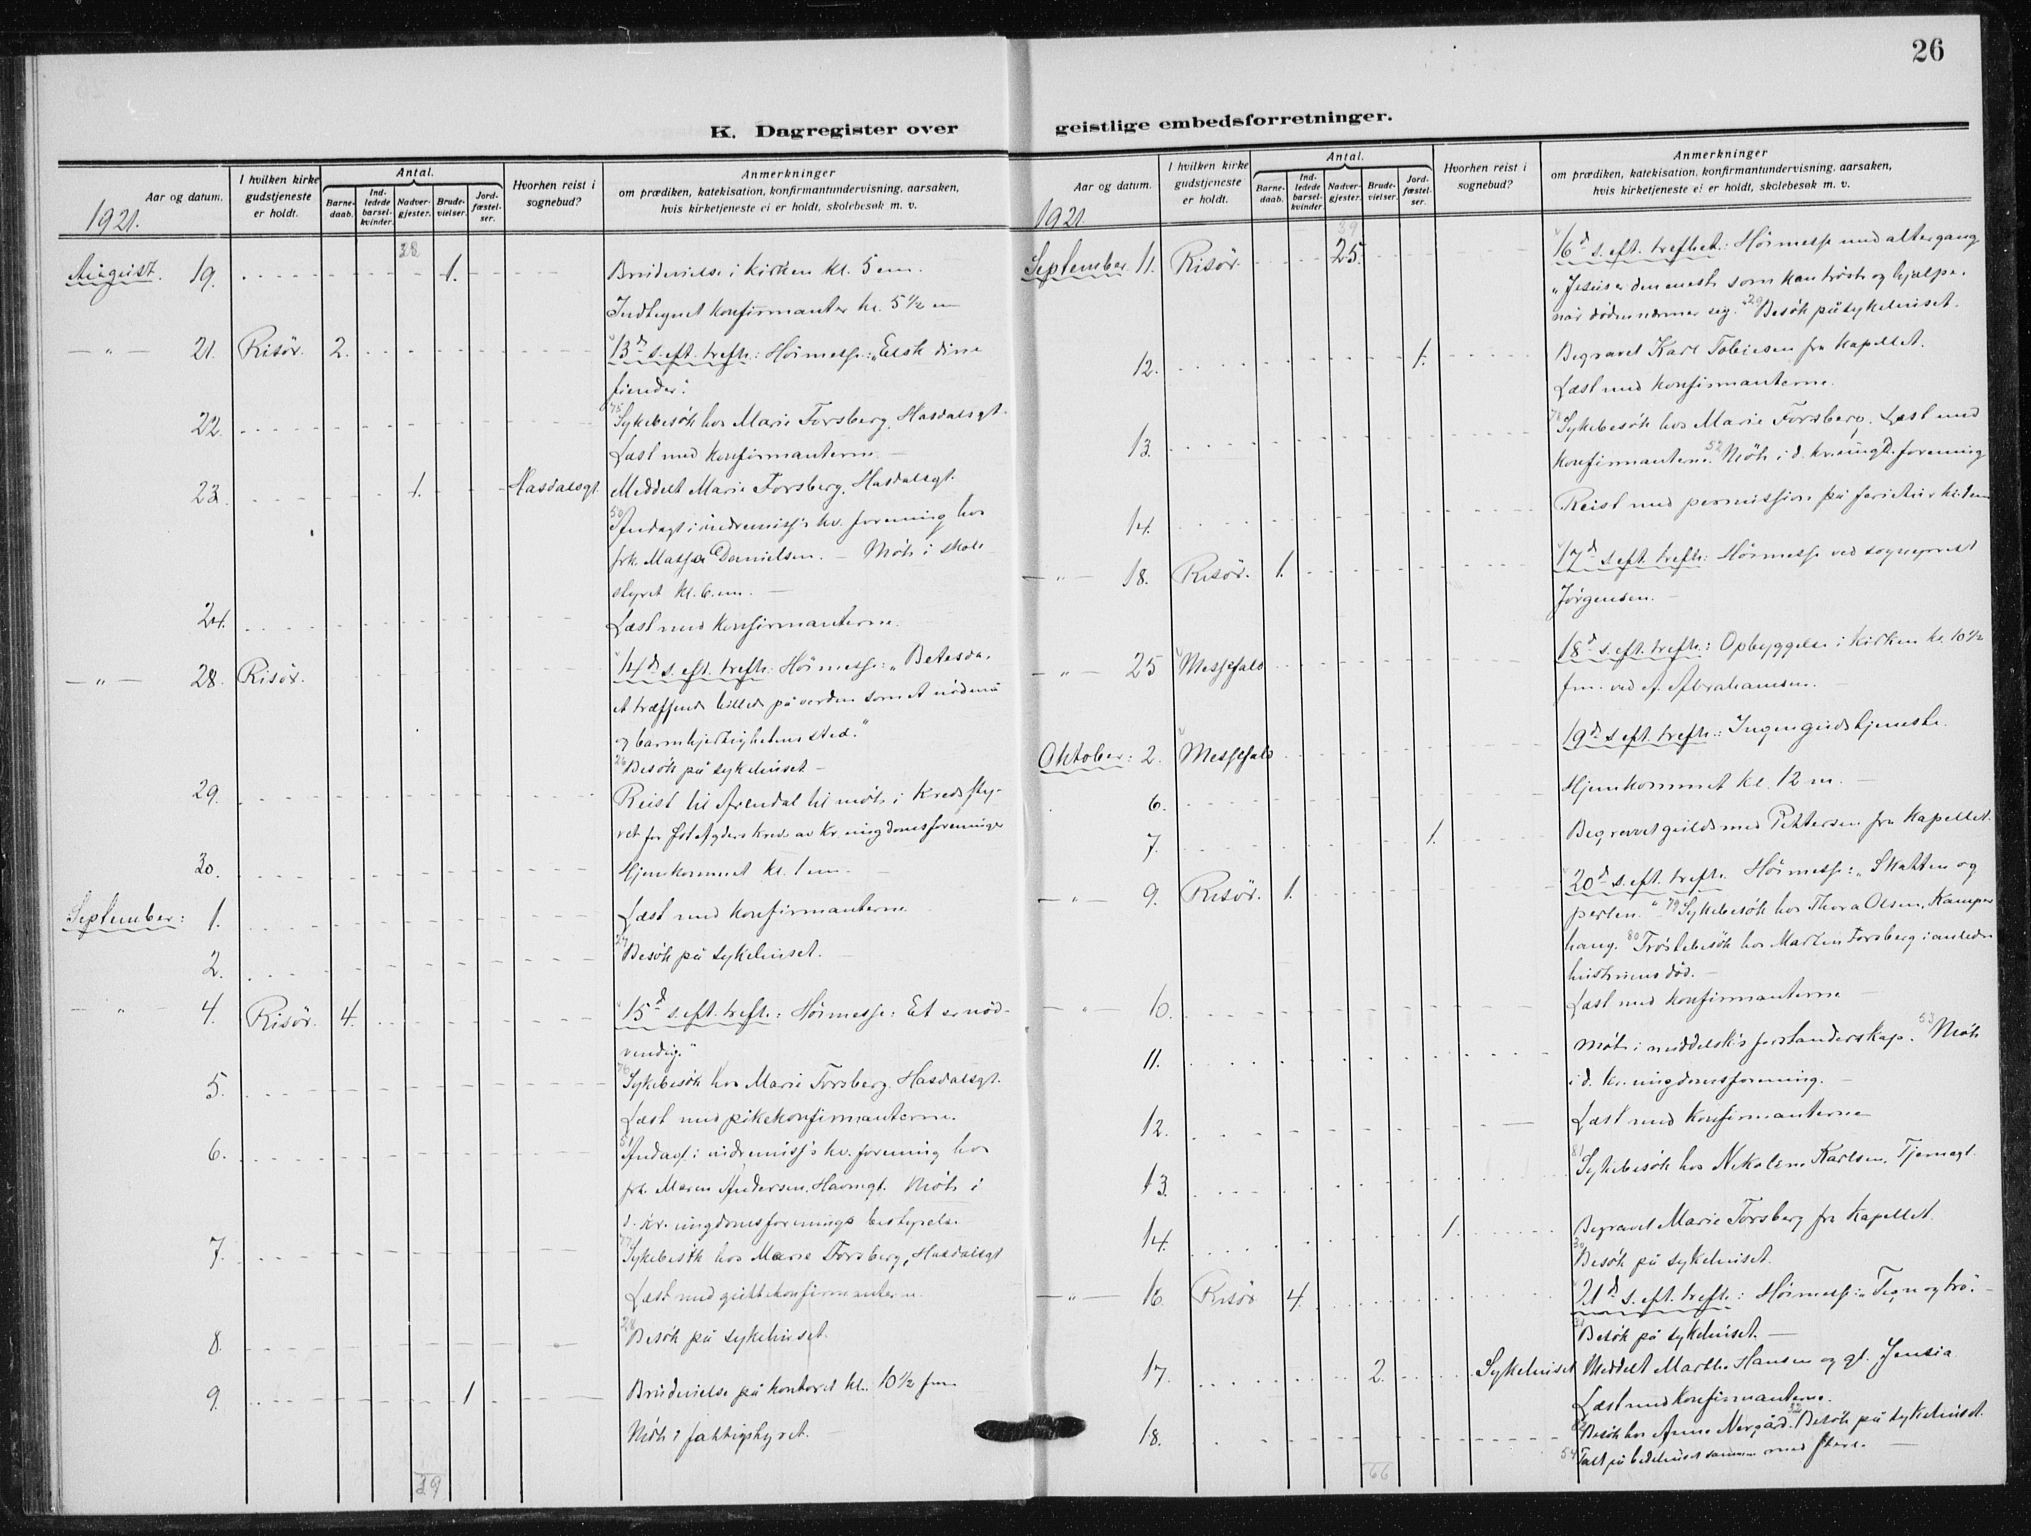 26
K. Dagregister over geistlige embedsforretninger.
Aar og datum.
I hvilken kirke gudstjeneste er holdt.
Antal.
Barnedaab.
Indledede barselkvinder.
Nadvergjester.
Brudevielser.
Jordfæstelser.
Hvorhen reist i sognebud?
Anmerkninger
om prædiken, katekisation, konfirmantundervisning, aarsaken,
hvis kirketjeneste ei er holdt, skolebesøk m. v.
1921.
38
August. 19. 1. Brudevielse i kirken kl. 5 em.
Indtegnet konfirmanter kl. 5 1/2 em
— " — 21. Risör. 2. 13d s. eft. trefh: Höimesse: „Elsk dine
fiender."
22. 75 Sykebesök hos Marie Forsberg, Hasdalsgt.
Læst med konfirmanterne. —
23. 1. Hasdalsgt. Meddelt Marie Forsberg, Hasdalsgt.
50 Andagt i indremiss's kv. forening hos
frk. Danielsen. — Möte i skole-
styret kl. 6. em. —
24. Læst med konfirmanterne.
— " — 28. Risör. 14d s. eft. trefh: Höimesse: „Betesda,
et træffende billede på verden som et nödens
og barmhjertighetens sted."
26 Besök på sykehuset —
29. Reist til Arendal til möte i Kredssty-
ret for Öst Agders kred av kr. ungdomsforeninger
30. Hjemkommet kl. 1 em. —
September: 1. Læst med konfirmanterne.
2. 27 Besök på sykehuset. —
— " — 4. Risör. 4. 15d s. eft. trefh.: Höimesse: Et er nöd-
vendig."
5. 76 Sykebesök hos Marie Forsberg, Hasdalsgt.
Læst med pikekonfirmanterne.
6. 51 Andagt i indremiss's kv. forening hos
frk. Maren Andersen, Havnegt. Möte i
d. kr. ungdomsforenings bestyrelse
7. 77 Sykebesök hos Marie Forsberg, Hasdalsgt
Læst med guttekonfirmanterne.
8. 28 Besök på sykehuset.
9. 1 Brudevielse på kontoret kl. 10 1/2 fm.
Möte i fattigstyret. —
39
Aar og datum.
I hvilken kirke gudstjeneste er holdt.
Antal.
Barnedaab.
Indledede barselkvinder.
Nadvergjester.
Brudevielser.
Jordfæstelser.
Hvorhen reist i sognebud?
Anmerkninger
om prædiken, katekisation, konfirmantundervisning, aarsaken,
hvis kirketjeneste ei er holdt, skolebesøk m. v.
1921.
39
September 11. Risör. 25. 16d s. eft. trefhet.: Höimesse med altergang
„Jesus er den eneste som kan tröste og hjælpe,
når döden nærmer sig." 29 Besök på sykehuset.
12. 1. Begravet Karl Tobiesen fra kapellet.
Læst med konfirmanterne.
13. 78 Sykebesök hos Marie Forsberg. Læst med
konfirmanterne. 52 Möte i d. kr. ungd. forening
14. Reist med permission på ferietur kl. 1 em
— " — 18. Risör. 1. 17d s. eft. trefh: Höimesse ved sogneprest
Jörgensen. —
— " — 25 Messefald 18d s. eft. trefh.: Opbyggelse i kirken kl. 10 1/2
fm. ved A. Abrahamsen. —
Oktober: 2. Messefald 19d s. eft. trefh.: Ingen gudstjeneste.
6. Hjemkommet kl. 12 m. —
7. 1. Begravet guldsmed Pettersen fra kapellet.
— " — 9. Risör. 1. 20d s. eft. trefh. Höimesse: „Skatten og
perlen." 79 Sykebesök hos Thora Olsen, Kamper
haug. 80 Tröstebesök hos Martin Forsberg i anledn
hustruens död. —
— " — 10. Læst med konfirmanterne —
11. Möte i middelsk's forstanderskap. 53 Möte
i d. kr. ungdomsforening. —
12. Læst med konfirmanterne
13. 81 Sykebesök hos Nikoline Karlsen, Tjernegt.
14. 1. Begravet Marie Forsberg fra kapellet.
30 Besök på sykehuset.
— " — 16. Risör 4. 21d s. eft. trefh.: Höimesse: „Tegn og tro." —
31 Besök på sykehuset. —
17. 2. Sykehuset Meddelt Marthe Hansen og gl. Jensia
Læst med konfirmanterne.
18. Besök hos Anne Nergård. 32 Besök på sykehuset.
54 Talt på bedehuset sammen med flere. —
66